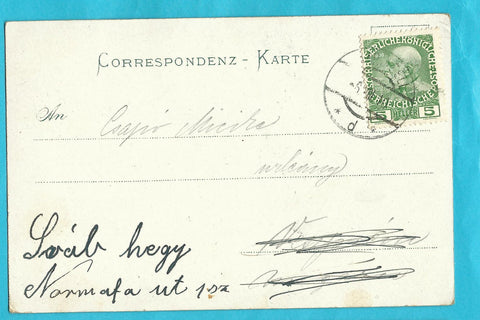 CORRESPONDENZ - KARTE
KAISERLICHEKÖNIGLICHE ÖSTERREICHISCHE POST
5 HELLER 5
An
Csapó Miczike
urleány
Sváb hegy
Normafa ut